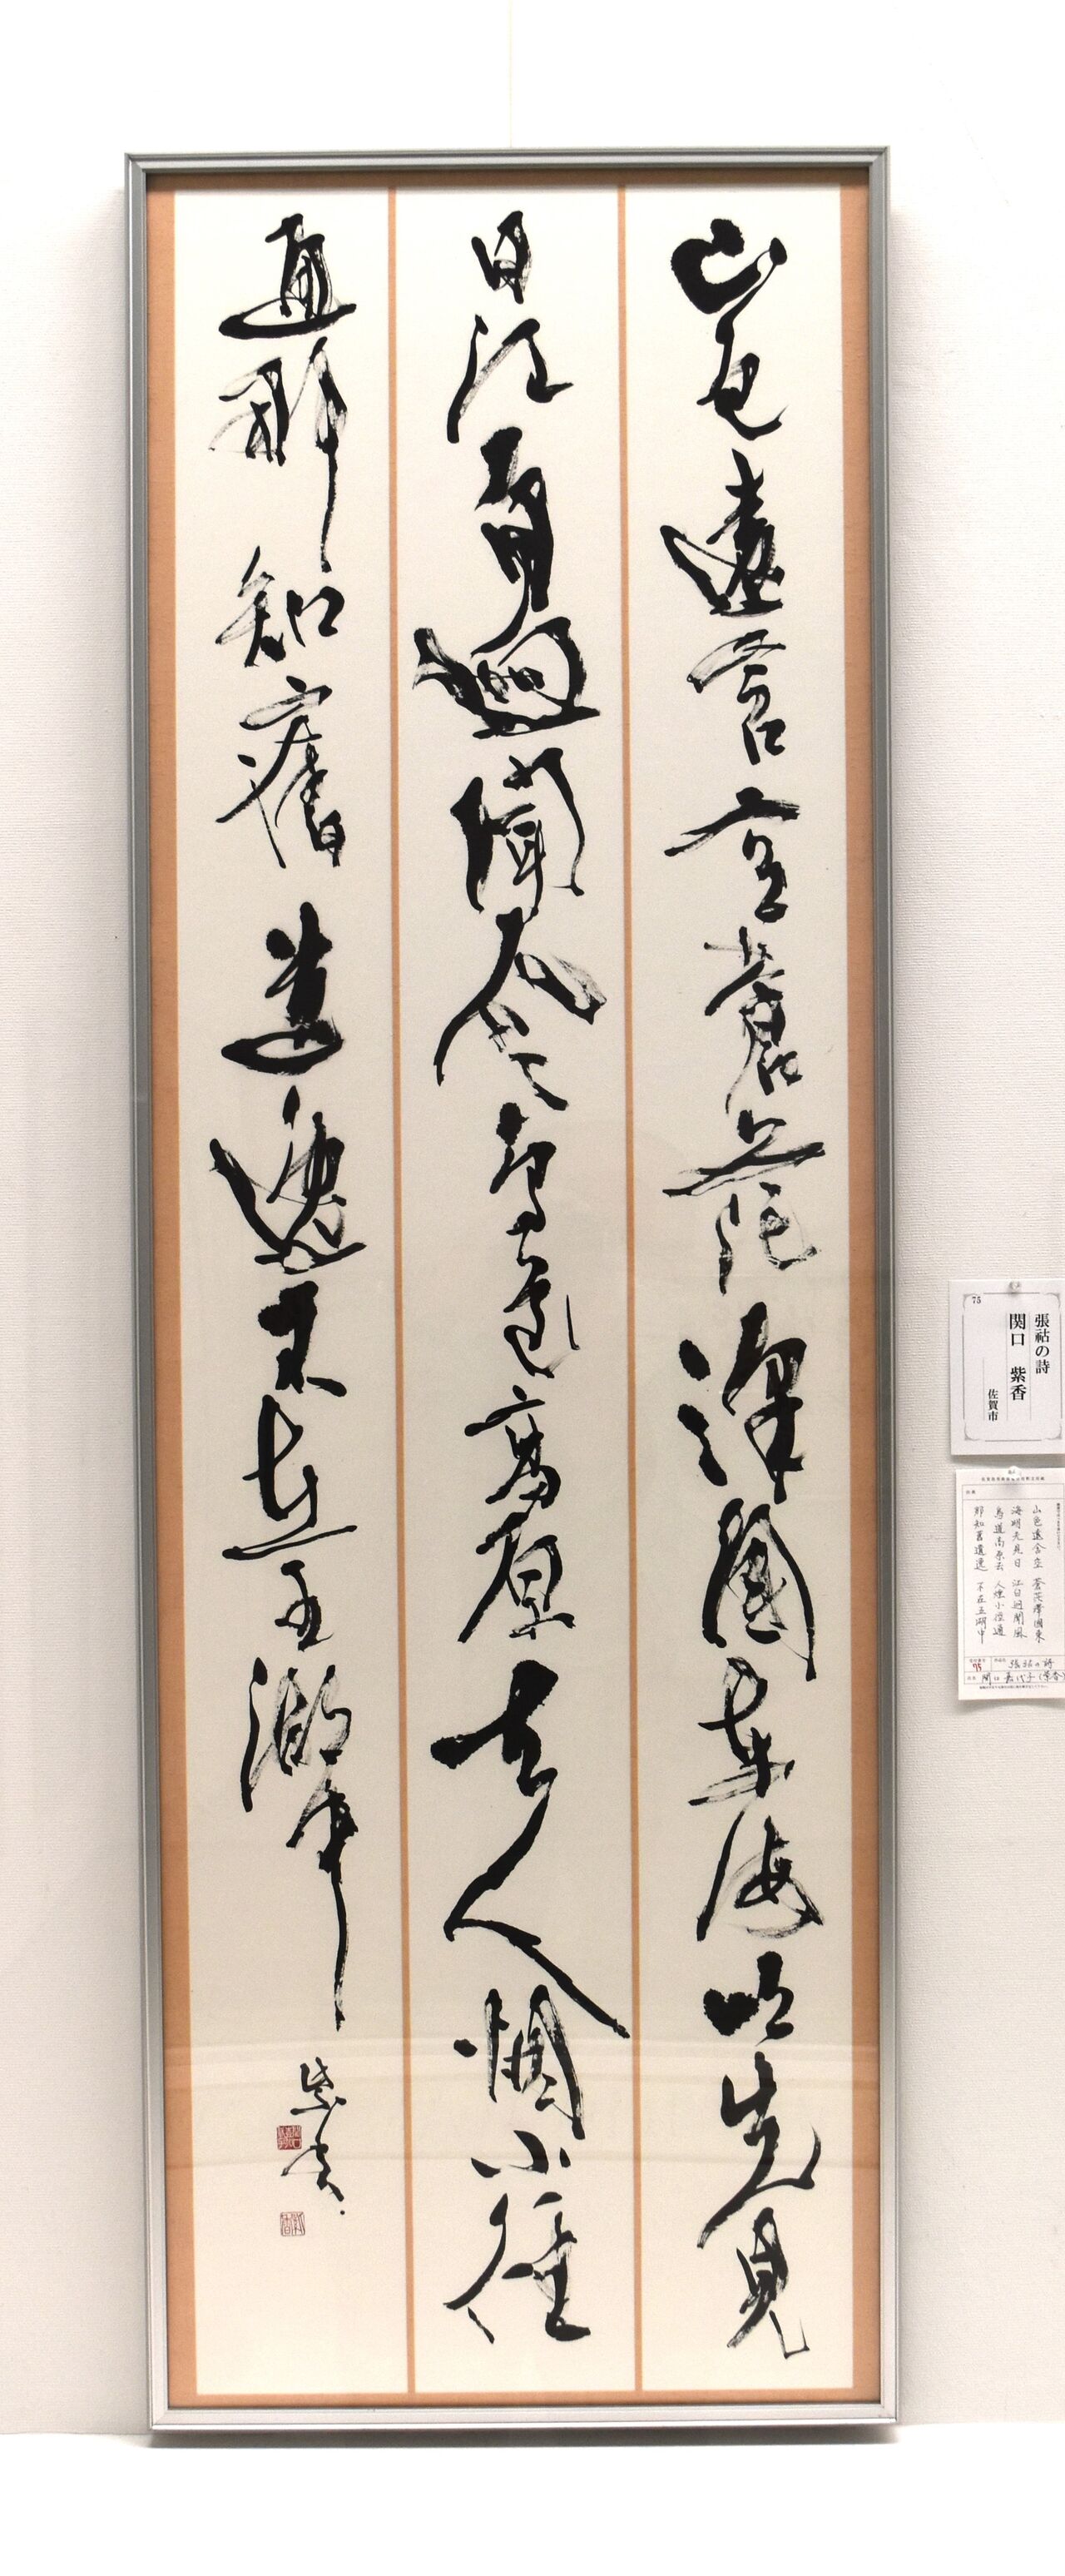 山色遠含空蒼茫澤國東海明先見
日江白迥聞風鳥道高原去人烟小徑
通那知舊遺逸不在五湖中
紫香
75
張祜の詩
関口 紫香
佐賀市
山色遠含空 蒼茫澤國東
海明先見日 江白迥聞風
鳥道高原去 人煙小徑通
那知舊遺逸 不在五湖中
75
張祜の詩
関口
(紫香)